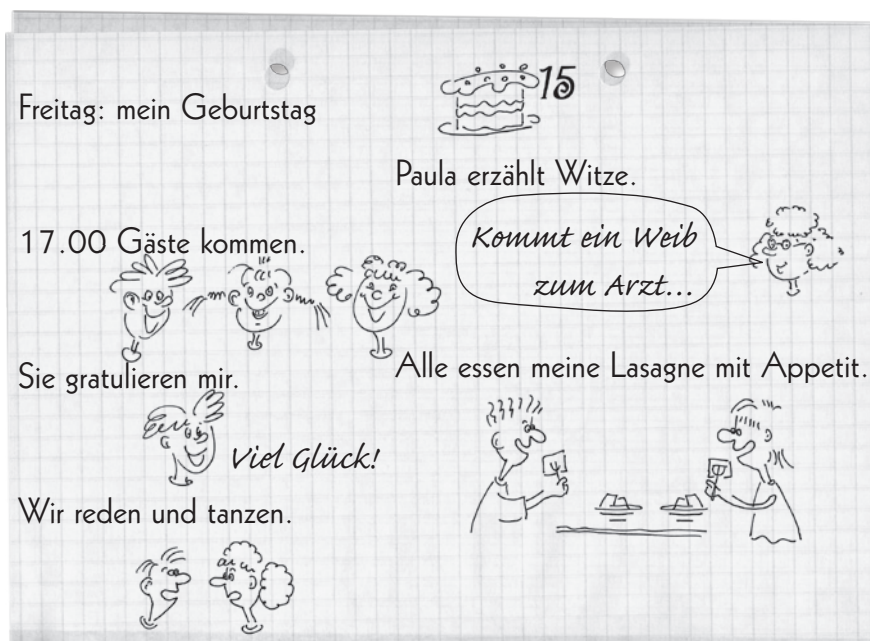 Freitag: mein Geburtstag
15
17.00 Gäste kommen.
Sie gratulieren mir.
Viel Glück!
Wir reden und tanzen.
Paula erzählt Witze.
Kommt ein Weib
zum Arzt...
Alle essen meine Lasagne mit Appetit.